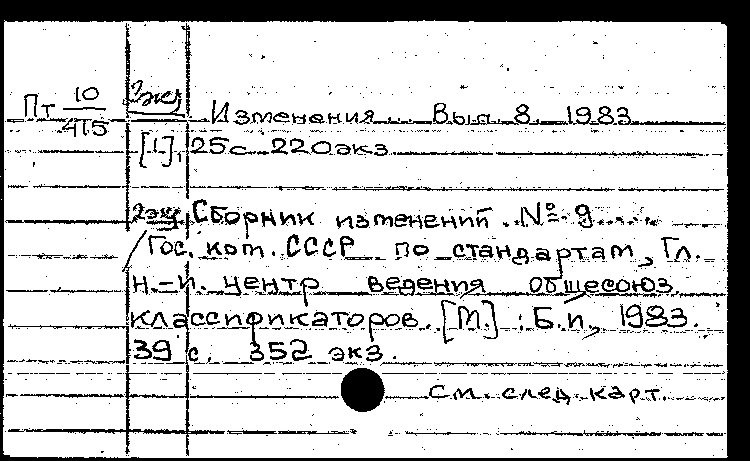 Пт 10/415 2экз Изменения... Вып. 8. 1983
[1], 25с 220экз
2экз. Сборник изменений. № 9.....
/Гос. ком. СССР по стандартам, Гл.
н.-и. центр ведения общесоюз.
классификаторов. [М.]: Б.и., 1983.
39 с. 352 экз.
см. след. карт.